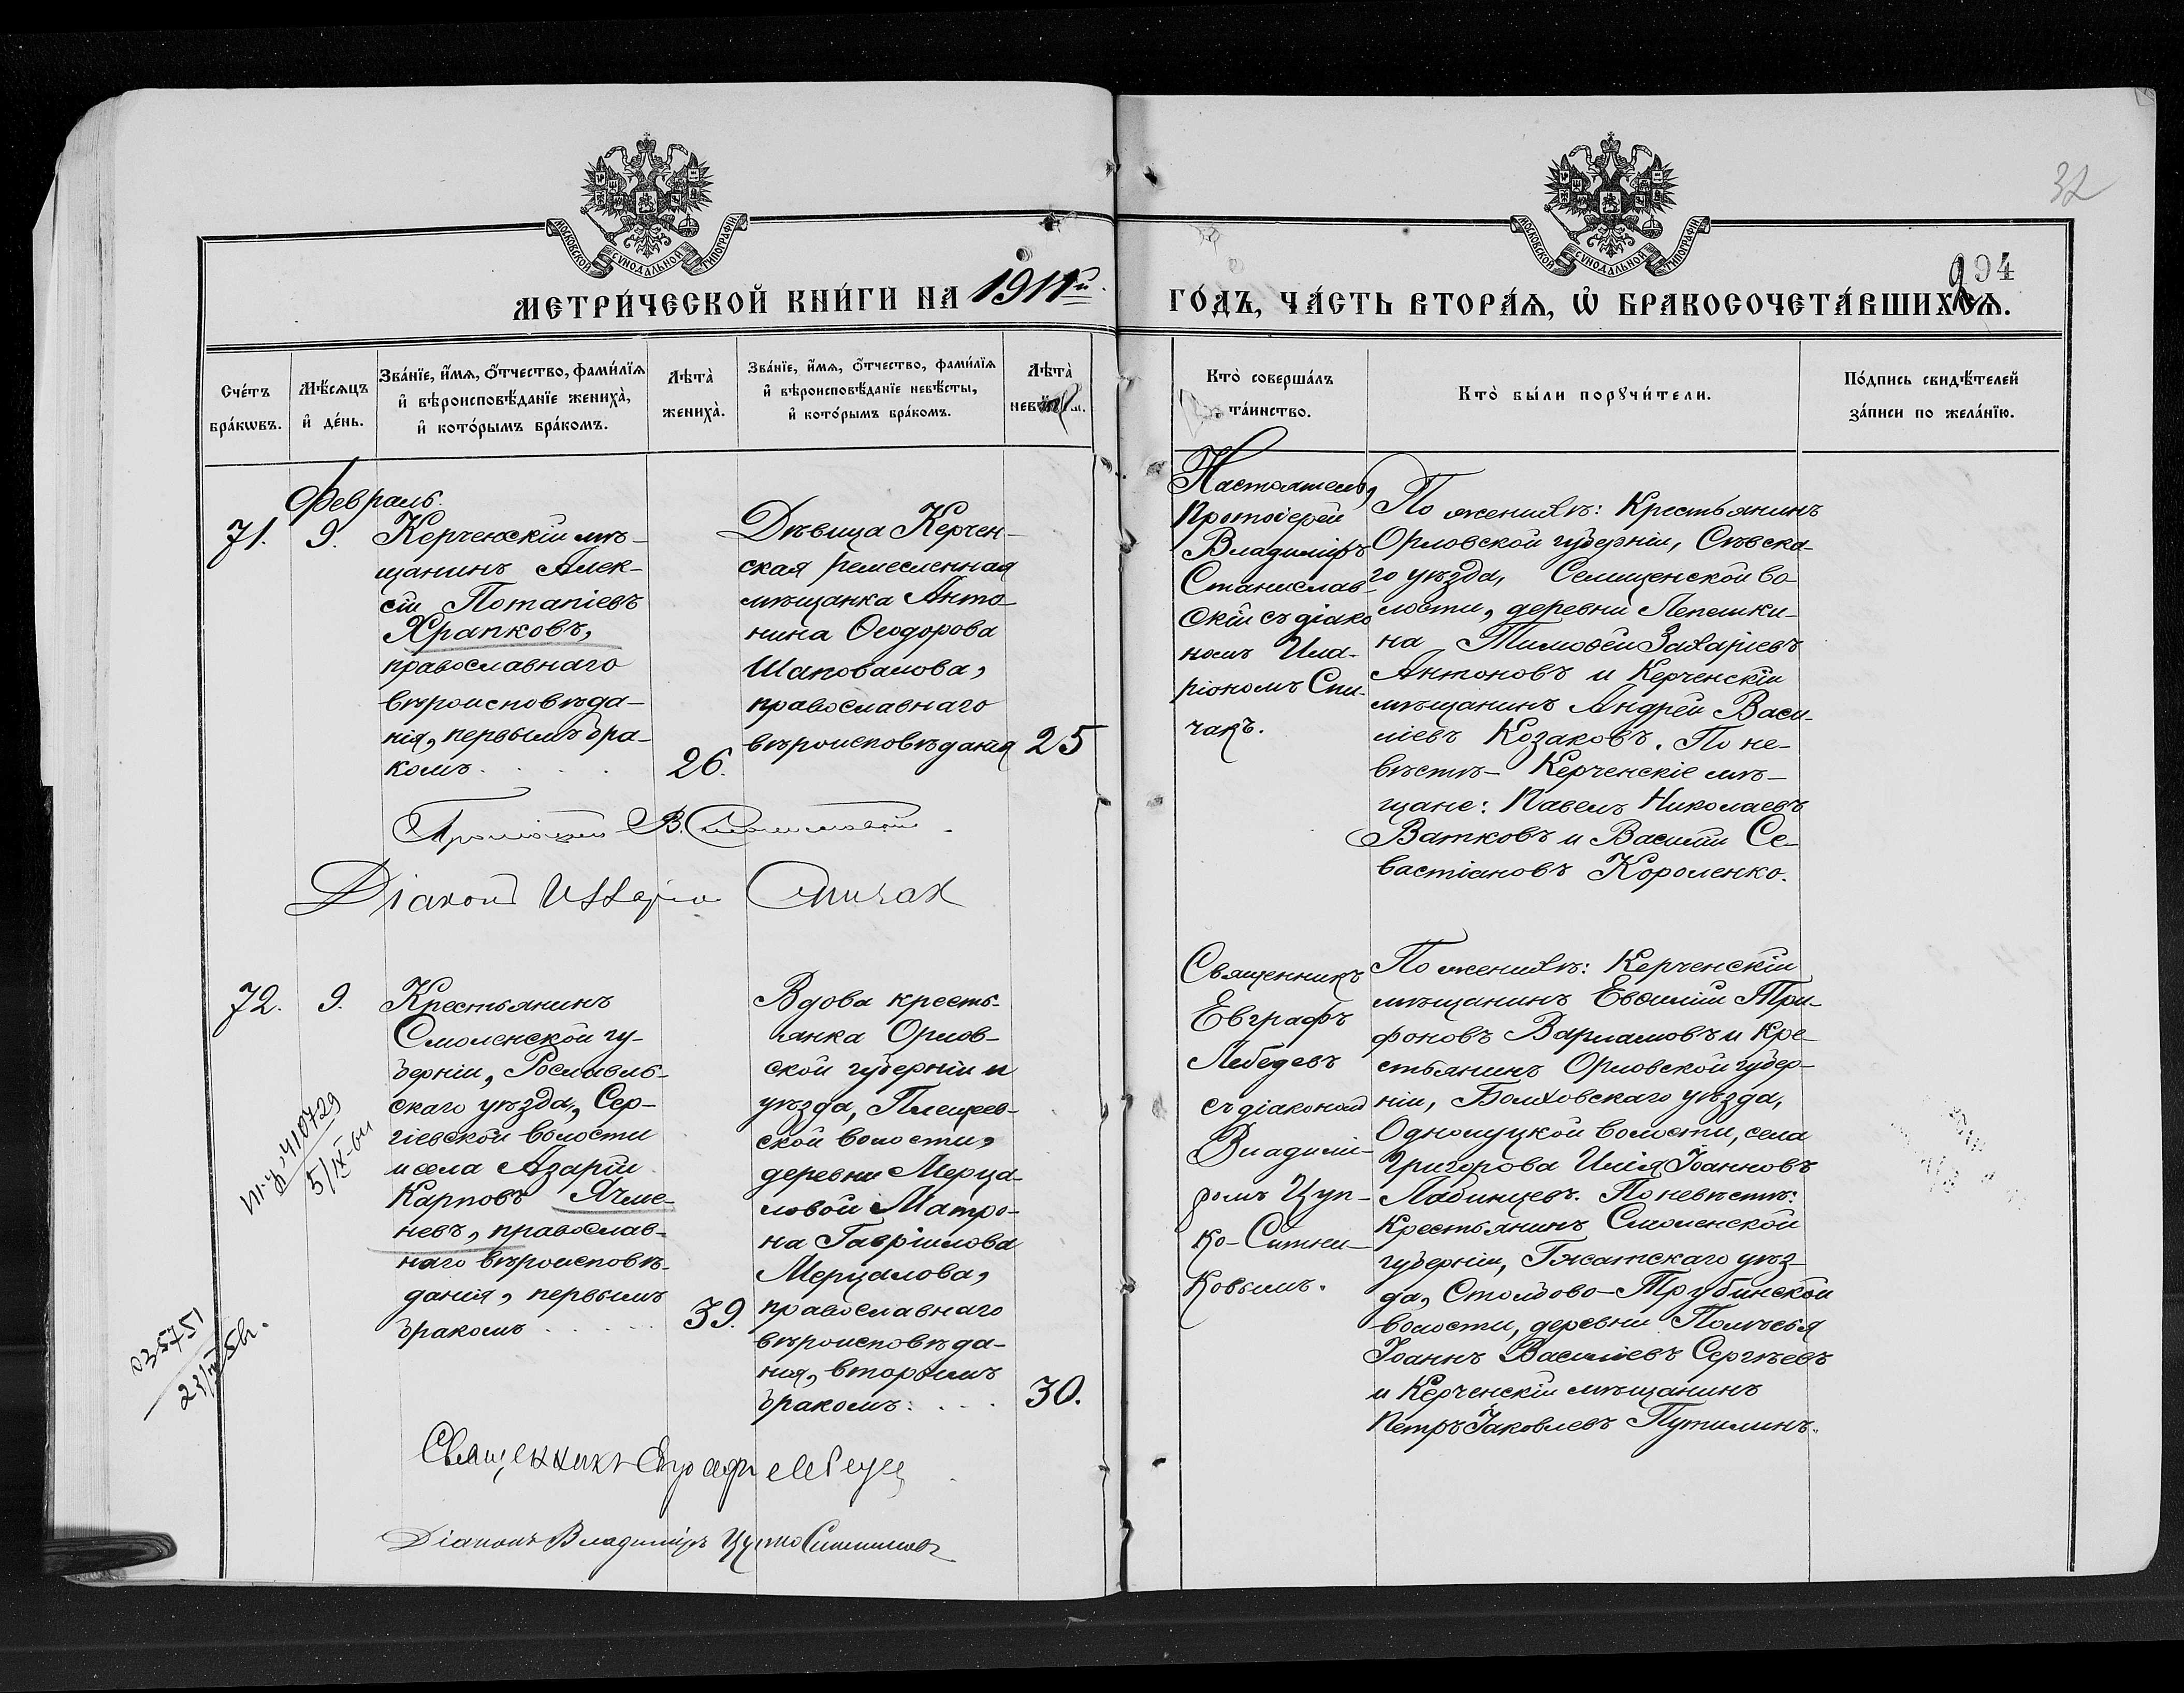 32
МОСКОВСКОЙ СѴНОДАЛЬНОЙ ТИПОГРАФІИ
МОСКОВСКОЙ СѴНОДАЛЬНОЙ ТИПОГРАФІИ
94
МЕТРИ́ЧЕСКОЙ КНИ́ГИ НА 1911й
ГО́ДЪ, ЧА́СТЬ ВТОРА́Ѧ, Ѡ БРАКОСОЧЕТА́ВШИХСЯ.
Сче́тъ бра́кѡвъ.
Мѣ́сяцъ и де́нь.
Зва́нїе, и́мѧ, о́тчество, фами́лїѧ и вѣроисповѣ́данїе жениха̀, и кото́рымъ бра́комъ.
Лѣта̀ жениха̀.
Зва́нїе, и́мѧ, о́тчество, фами́лїѧ и вѣроисповѣ́данїе невѣ́сты, и кото́рымъ бра́комъ.
Лѣта̀
Кто̀ соверша́лъ та́инство.
Кто̀ бы́ли порꙋчи́тели.
По́дпись свидѣ́телей за́писи по жела́нїю.
Февраль.
71.
9.
Керченскій мѣ-
щанинъ Алек-
сій Потапіевъ
Храпковъ,
православнаго
вѣроисповѣда-
нія, первымъ бра-
комъ. . . .
26.
Дѣвица Керчен-
ская ремесленная
мѣщанка Анто-
нина Ѳеодорова
Шаповалова,
православнаго
вѣроисповѣданія
25
Настоятель,
Протоіерей
Владиміръ
Станислав-
скій съ діако
номъ Ила-
ріономъ Спи-
чакъ.
По женихѣ: Крестьянинъ
Орловской губерніи, Сѣвска-
го уѣзда, Селищенской во
лости, деревни Лепешки-
на Тимоѳей Захаріевъ
Антоновъ и Керченскій
мѣщанинъ Андрей Васи-
ліевъ Козаковъ. По не-
вѣстѣ - Керченскіе мѣ-
щане: Павелъ Николаевъ
Ватковъ и Василій Се-
вастіановъ Короленко.
Протоіерей В. Станиславскій
Діаконъ Спичак
72.
9.
Крестьянинъ
Смоленской гу-
берніи, Рославль-
скаго уѣзда, Сер-
гіевской волости
и села Азарій
Карповъ Ячме-
невъ, православ-
наго вѣроисповѣ-
данія, первымъ
бракомъ . . . . .
39.
Вдова кресть-
янка Орлов-
ской губерніи и
уѣзда, Плещеев-
ской волости,
деревни Мерца-
ловой Матро-
на Гавріилова
Мерцалова,
православнаго
вѣроисповѣда-
нія, вторымъ
бракомъ: . . .
30.
Священникъ
Евграфъ
Лебедевъ
съ діакономъ
Владимі-
ромъ Цуп-
ко-Ситни-
ковымъ.
По женихѣ: Керченскій
мѣщанинъ Евѳимій Три-
фоновъ Варламовъ и Кре-
стьянинъ Орловской губер-
ніи, Болховскаго уѣзда,
Однолуцкой волости, села
Григорова Илія Іоанновъ
Лабинцевъ. По невѣстѣ:
Крестьянинъ Смоленской
губерніи, Гжатскаго уѣз-
да, Столбово-Трубинской
волости, деревни Полѣсья
Іоаннъ Василіевъ Сергѣевъ
и Керченскій мѣщанинъ
Петръ Іаковлевъ Путилинъ.
410729
5/IX-
035751
Священникъ Евграфъ Лебедев
Діаконъ Владиміръ Цупко Ситников